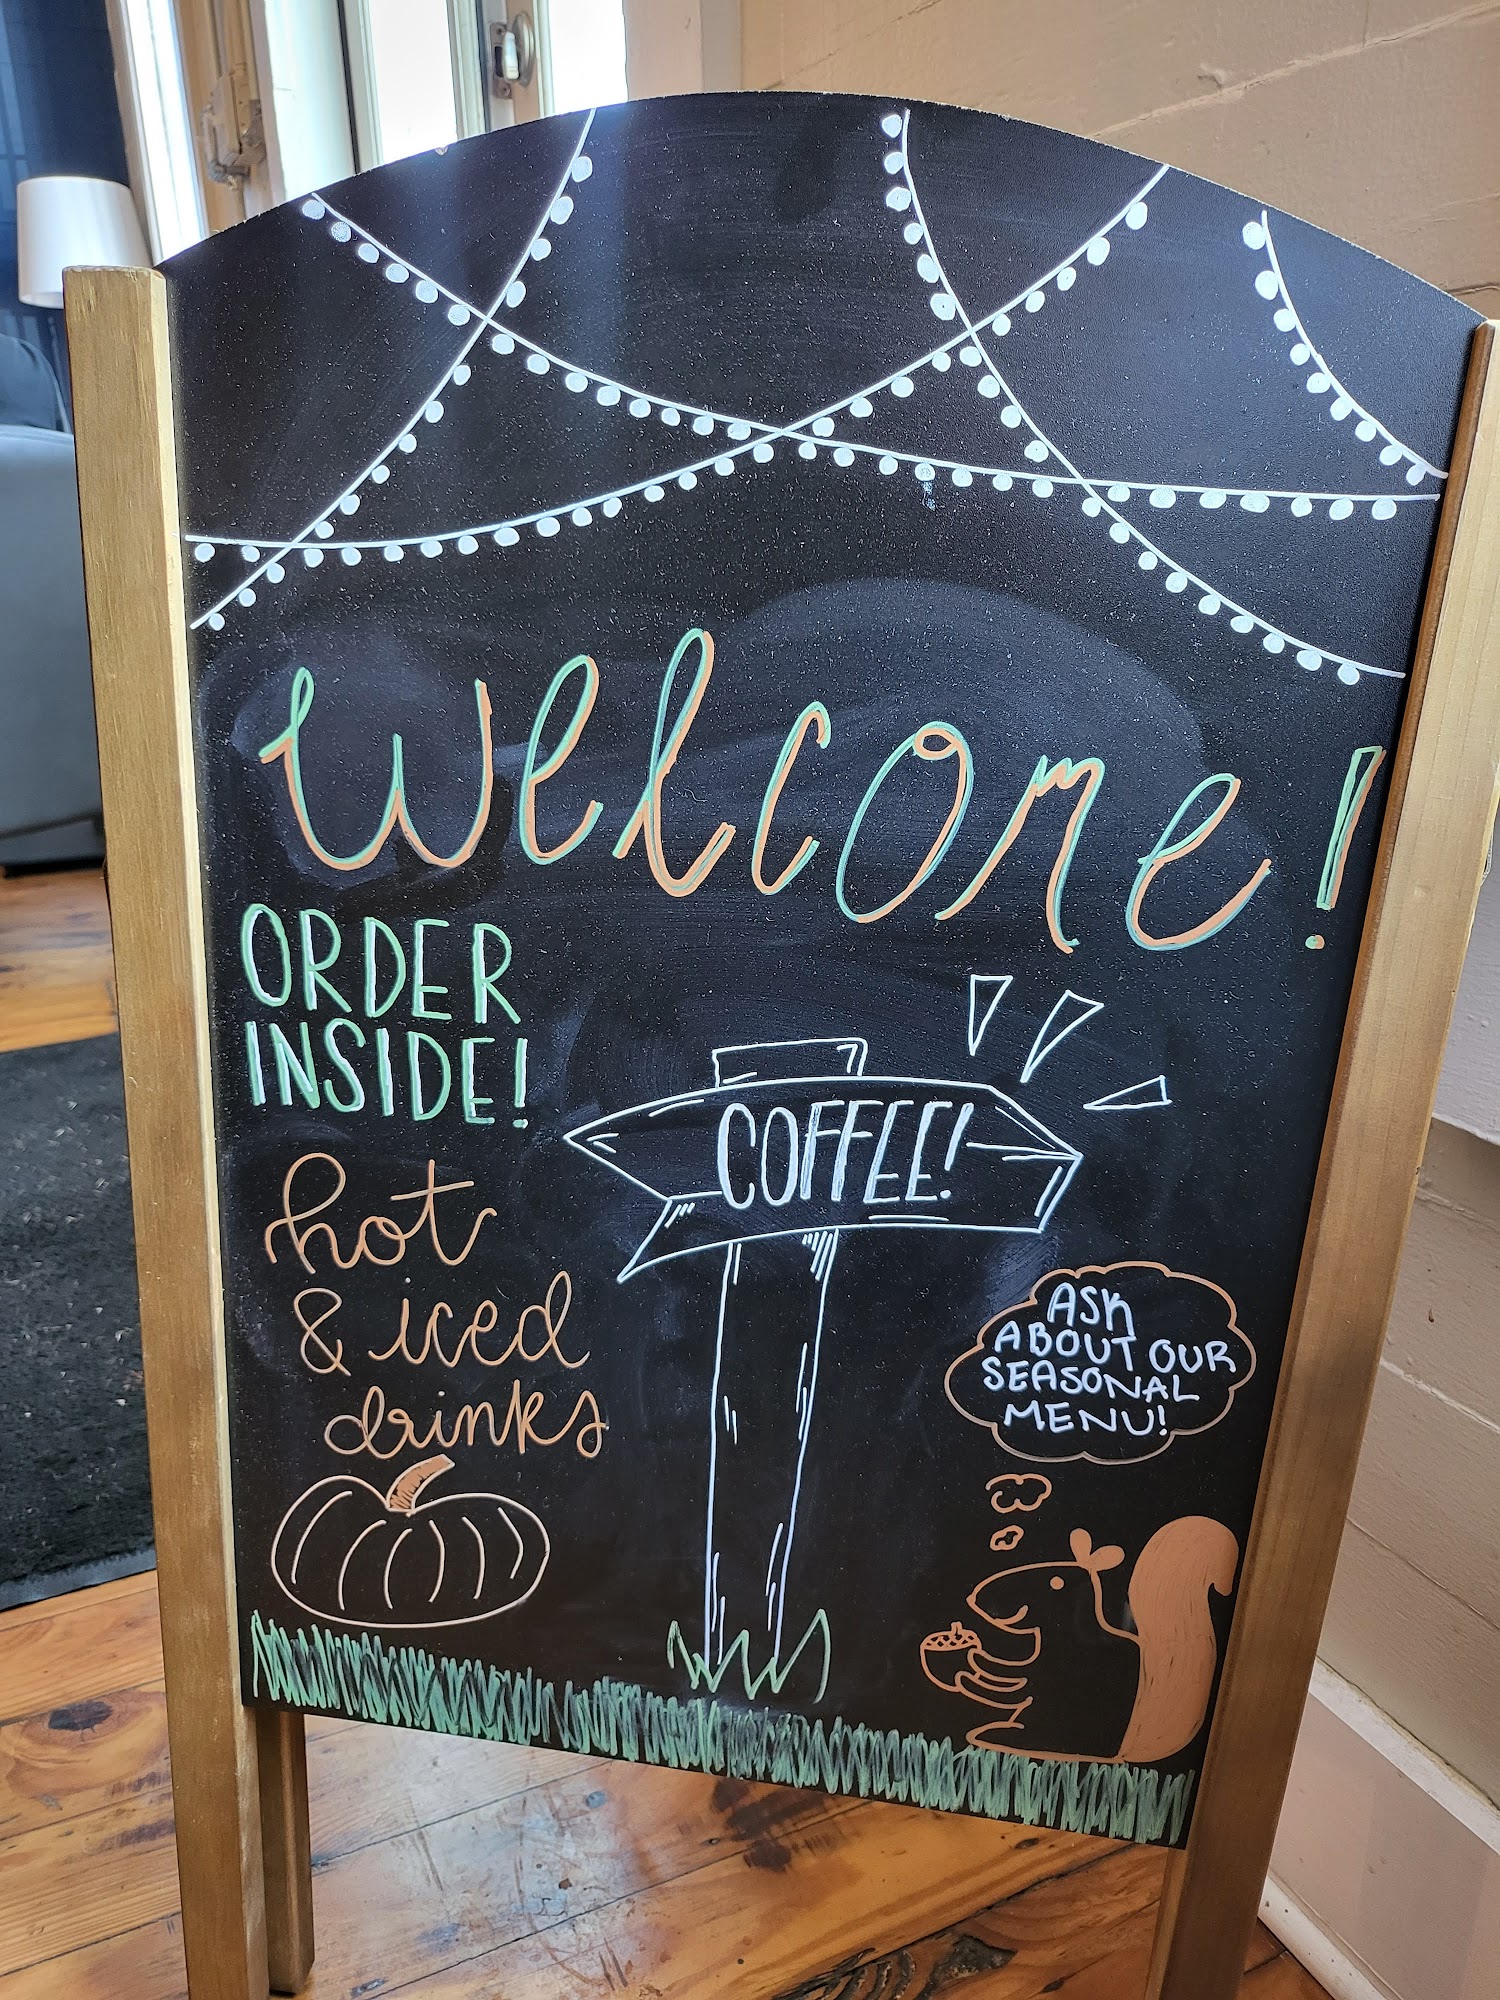 welcome!
ORDER
INSIDE!
COFFEE!
hot
& iced
drinks
ASK
ABOUT OUR
SEASONAL
MENU!